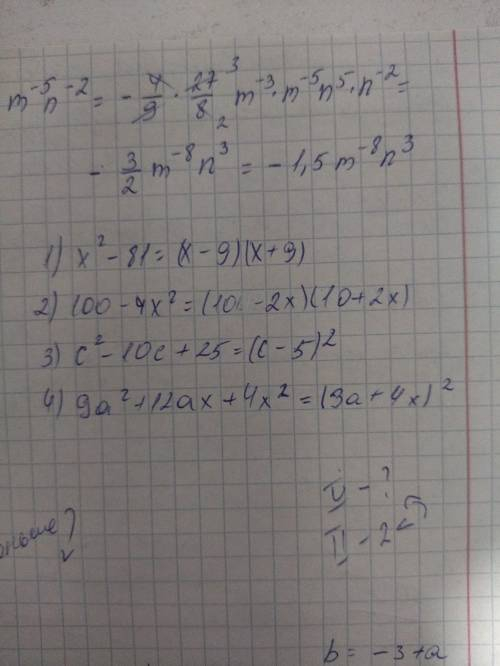 m⁻⁵n⁻² = - 4/9 · 27/8 ³ ₂ m⁻³ · m⁻⁵n⁵ · n⁻² =
- 3/2 m⁻⁸n³ = - 1,5 m⁻⁸n³
1) x² - 81 = (x - 9)(x + 9)
2) 100 - 4x² = (10 - 2x)(10 + 2x)
3) c² - 10c + 25 = (c - 5)²
4) 9a² + 12ax + 4x² = (3a + 4x)²
II - ?
II - 2
b = -3 + a